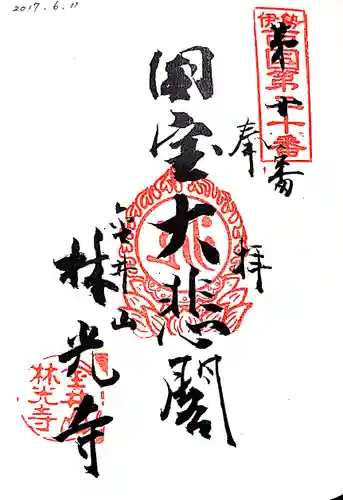 2017.6.11
伊勢
西国第二十番
第廿番
奉拝
国宝大悲閣
金井山
林光寺
金井山
林光寺